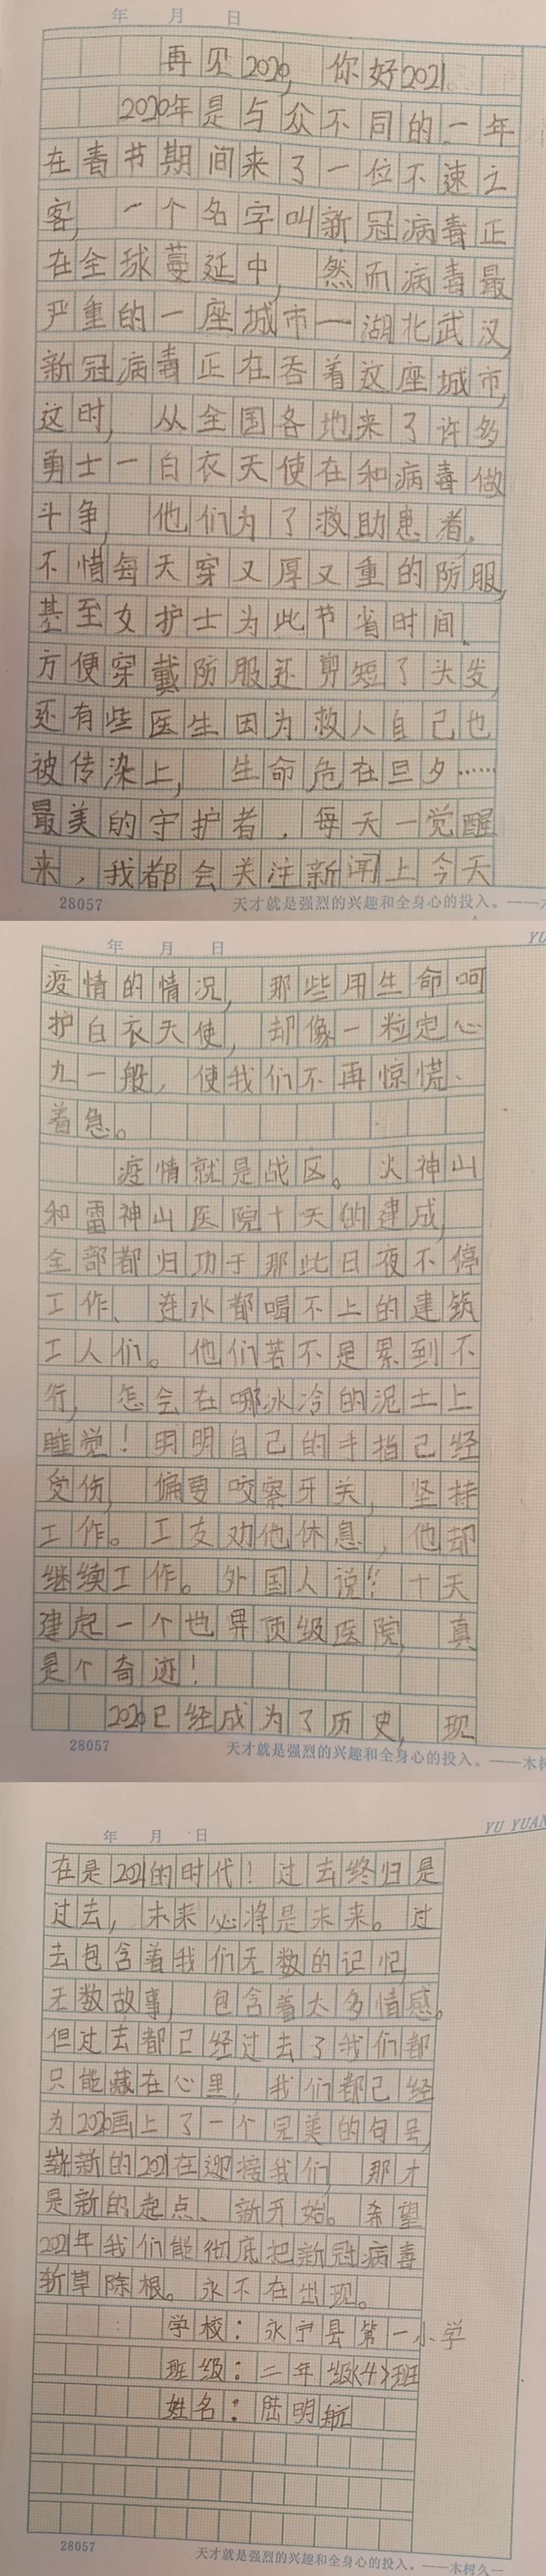 年 月 日
再见2020,你好2021
2020年是与众不同的一年
在春节期间来了一位不速之
客,一个名字叫新冠病毒正
在全球蔓延中,然而病毒最
严重的一座城市一湖北武汉,
新冠病毒正在吞着这座城市,
这时,从全国各地来了许多
勇士一白衣天使在和病毒做
斗争,他们为了救助患者,
不惜每天穿又厚又重的防服,
甚至女护士为此节省时间、
方便穿戴防服还剪短了头发,
还有些医生因为救人自己也
被传染上,生命危在旦夕……
最美的守护者,每天一觉醒
来,我都会关注新闻上今天
28057 天才就是强烈的兴趣和全身心的投入。——
年 月 日 YU
疫情的情况,那些用生命呵
护白衣天使,却像一粒定心
九一般,使我们不再惊慌、
着急。
疫情就是战区。火神山
和雷神山医院十天的建成,
全部都归功于那此日夜不停
工作、连水都喝不上的建筑
工人们。他们若不是累到不
行,怎会在哪冰冷的泥土上
睡觉!明明自己的手指已经
受伤,偏要咬紧牙关,坚持
工作。工友劝他休息,他却
继续工作。外国人说:“十天
建起一个世界顶级医院,真
是个奇迹!
2020已经成为了历史,现
28057 天才就是强烈的兴趣和全身心的投入。——木树
年 月 日 YU YUAN
在是2021的时代!过去终归是
过去,未来必将是未来。过
去包含着我们无数的记忆,
无数故事,包含着太多情感。
但过去都已经过去了我们都
只能藏在心里,我们都已经
为2020画上了一个完美的句号,
崭新的2021在迎接我们,那才
是新的起点、新开始。希望
2021年我们能彻底把新冠病毒
斩草除根。永不在出现。
学校:永宁县第一小学
班级:二年级<4>班
姓名:陆明航
28057 天才就是强烈的兴趣和全身心的投入。——木树久一